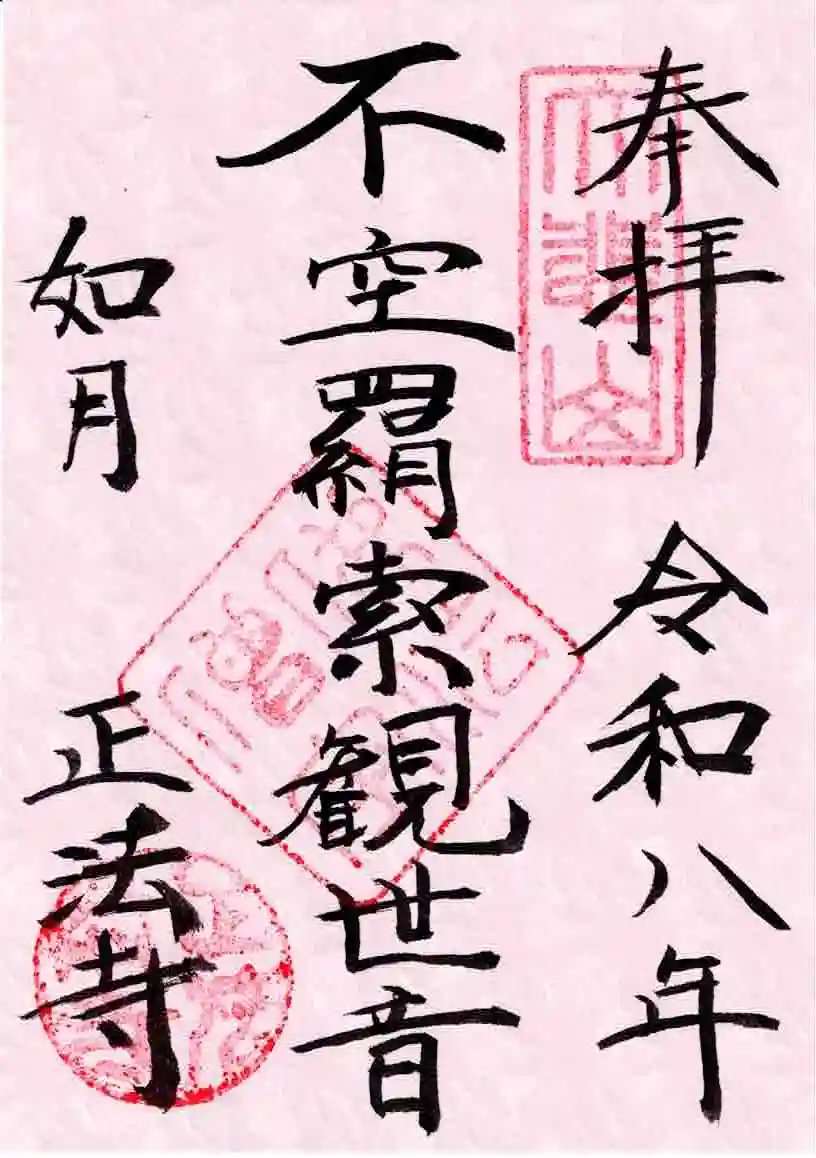 奉拝 令和八年
不空羂索観世音
如月 正法寺